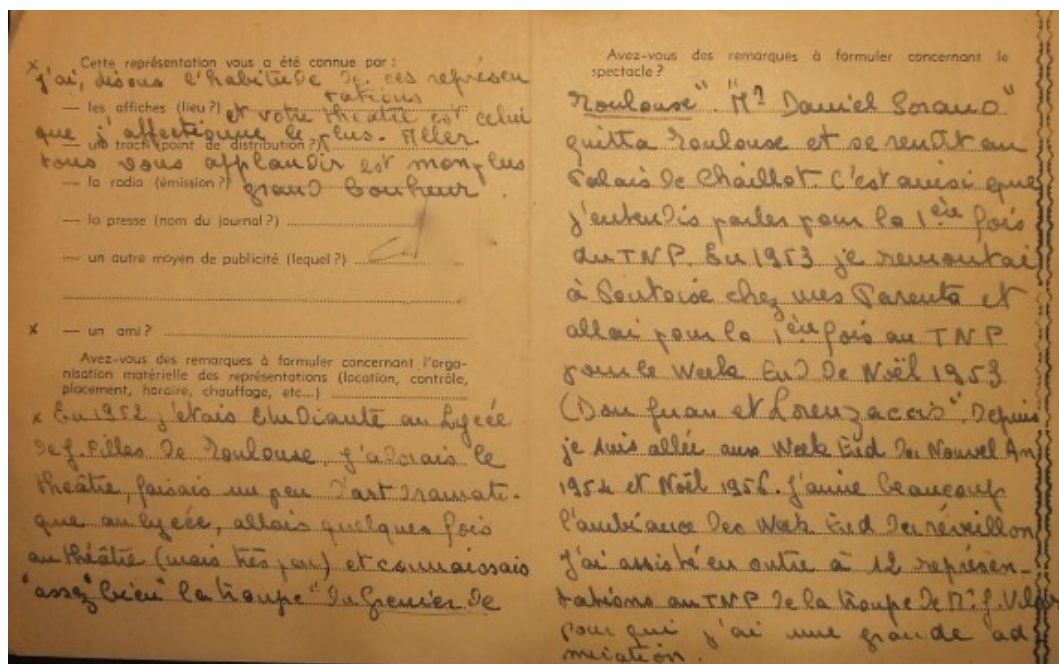 x Cette représentation vous a été connue par :
j'ai, disons l'habitude de ces représen
tations
— les affiches (lieu ?) et votre théâtre est celui
que j'affectionne le plus. Aller
— un tract (point de distribution ?)
vous applaudir est mon plus
— la radio (émission ?) grand bonheur.
— la presse (nom du journal ?)
— un autre moyen de publicité (lequel ?)
x — un ami ?
Avez-vous des remarques à formuler concernant l'orga-
nisation matérielle des représentations (location, contrôle,
placement, horaire, chauffage, etc...)
x En 1952 j'étais Etudiante au Lycée
de J. Filles de Toulouse. J'adorais le
théâtre, faisais un peu d'art dramati-
que au lycée, allais quelques fois
au théâtre (mais très peu) et connaissais
"assez" bien "la troupe" du Grenier de
Avez-vous des remarques à formuler concernant le
spectacle ?
Toulouse". "Mr Daniel Sorano"
quitta Toulouse et se rendit au
Palais de Chaillot. C'est ainsi que
j'entendis parler pour la 1ère fois
du TNP. En 1953 je remontai
à Pontoise chez mes Parents et
allai pour la 1ère fois au TNP
pour le Week End de Noël 1953
(Don Juan et Lorenzaccio" Depuis
je suis allée aux Week End du Nouvel An
1954 et Noël 1956. J'aime beaucoup
l'ambiance des Week End du réveillon
J'ai assisté en outre à 12 représen-
tations au TNP de la troupe de Mr J. Vilar
pour qui j'ai une grande ad
miration.